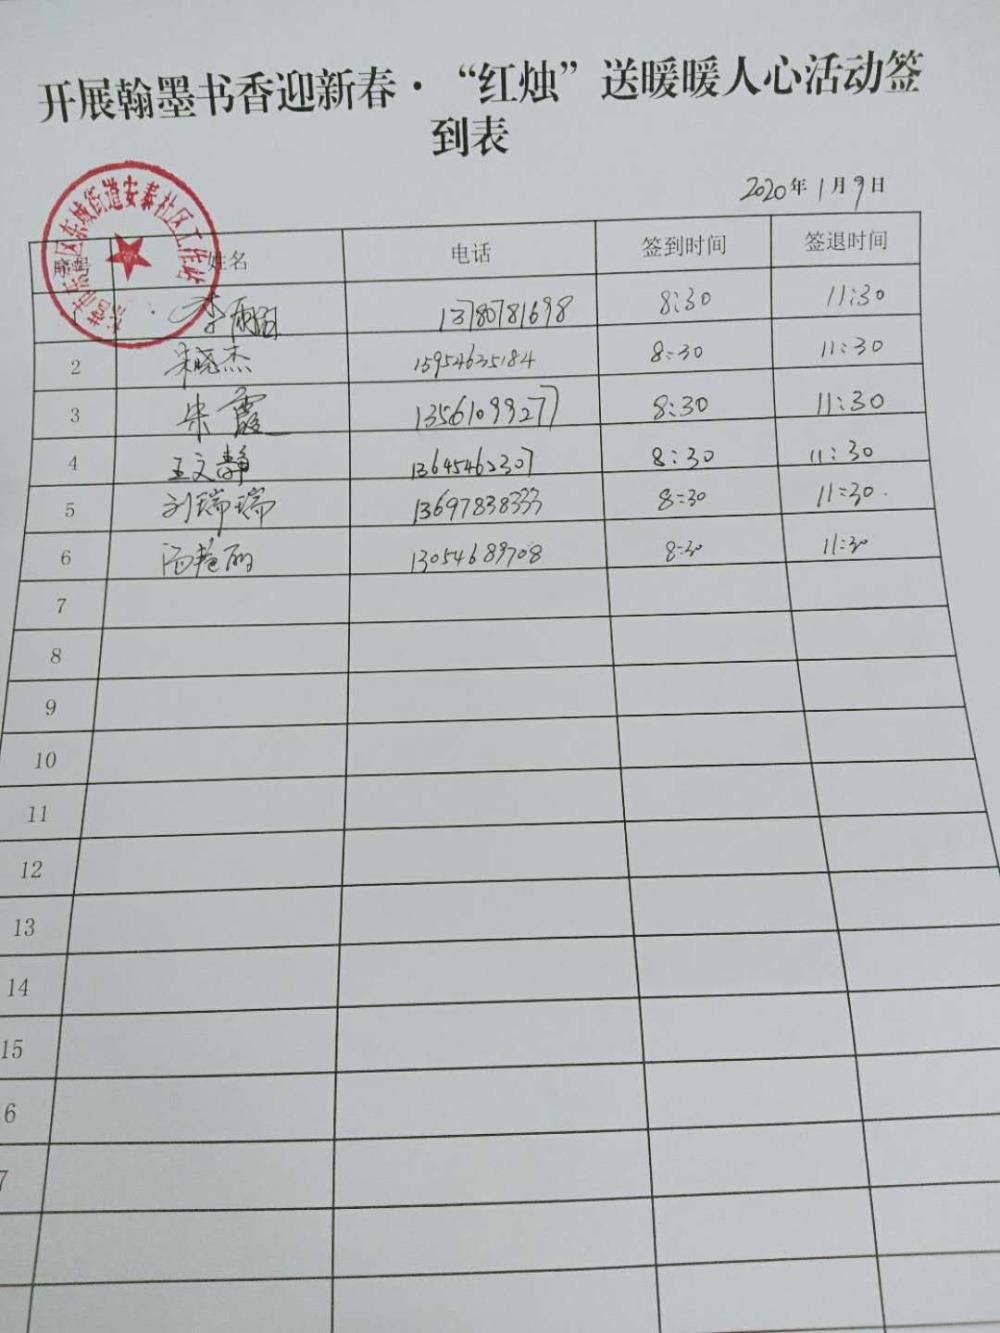 开展翰墨书香迎新春·“红烛”送暖暖人心活动签
到表
2020年1月9日
东营市东营区东城街道安泰社区工作站
编号 姓名 电话 签到时间 签退时间
1 李 13780781698 8:30 11:30
2 宋晓杰 15954635184 8:30 11:30
3 宋霞 13561099277 8:30 11:30
4 王文静 13645462307 8:30 11:30
5 刘瑞瑞 13697838333 8:30 11:30.
6 冯艳丽 13054689708 8:30 11:30
7
8
9
10
11
12
13
14
15
6
7